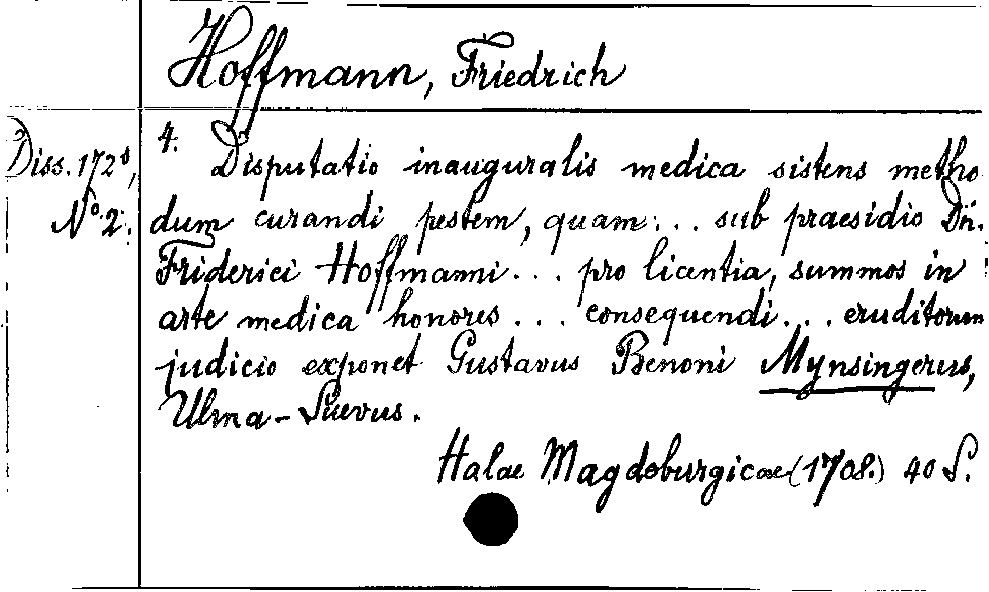 Hoffmann, Friedrich
Diss. 1728,
No. 2.
4.
Disputatio inauguralis medica sistens metho
dum curandi pestem, quam... sub praesidio Dn.
Friderici Hoffmanni... pro licentia, summos in
arte medica honores... consequendi... eruditorum
judicio exponet Gustavus Benoni Mynsingerus,
Ulma-Suevus.
Halae Magdeburgicae (1708.) 40 S.